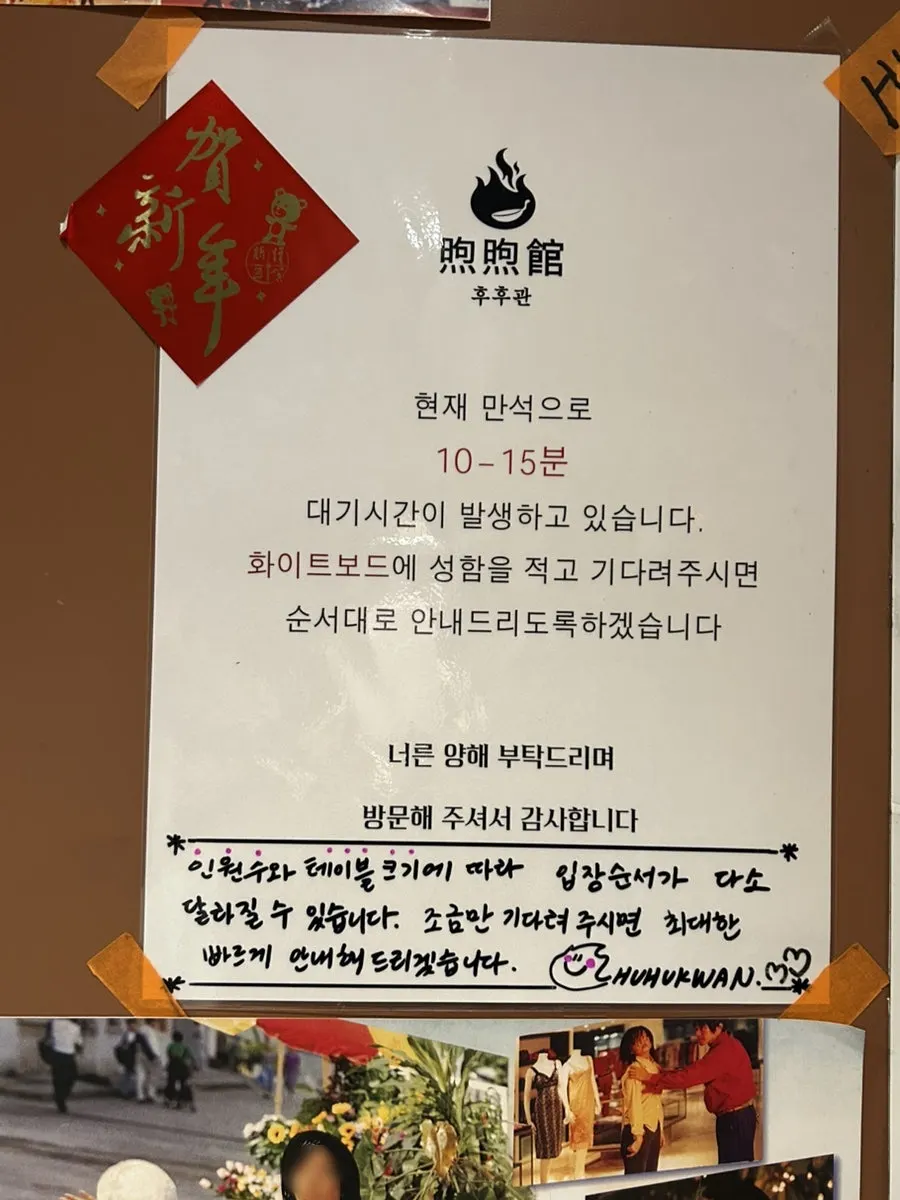 賀
新
年
煦煦館
후후관
현재 만석으로
10-15분
대기시간이 발생하고 있습니다.
화이트보드에 성함을 적고 기다려주시면
순서대로 안내드리도록하겠습니다
너른 양해 부탁드리며
방문해 주셔서 감사합니다
인원수와 테이블 크기에 따라 입장순서가 다소
달라질 수 있습니다. 조금만 기다려 주시면 최대한
빠르게 안내해 드리겠습니다. HUHUKWAN.